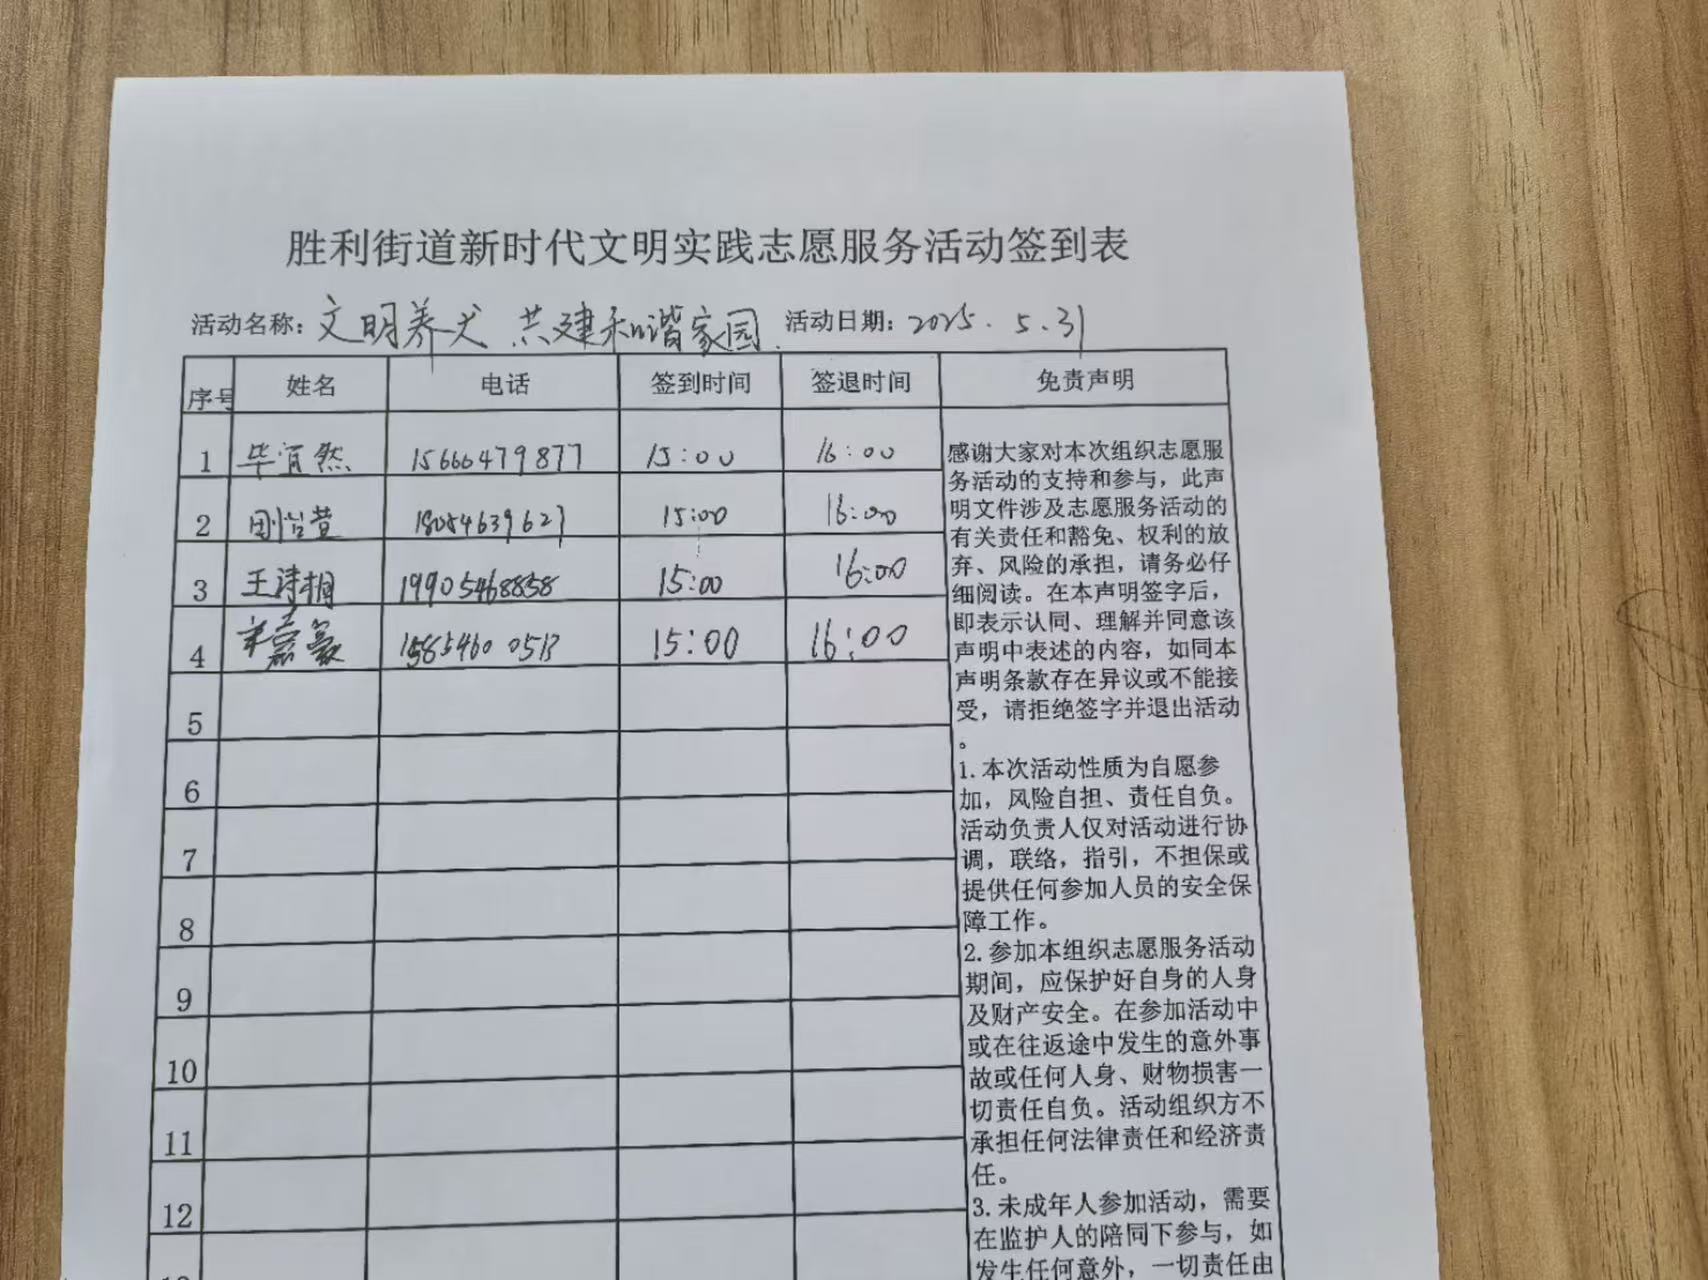 胜利街道新时代文明实践志愿服务活动签到表
活动名称: 文明养犬 共建和谐家园 活动日期: 2025.5.31
序号 姓名 电话 签到时间 签退时间 免责声明
1 毕宜然 15666479877 15:00 16:00
2 周怡萱 18054639627 15:00 16:00
3 王诗桐 19905468858 15:00 16:00
4 嘉豪 15:00 16:00
5
6
7
8
9
10
11
12
感谢大家对本次组织志愿服
务活动的支持和参与，此声
明文件涉及志愿服务活动的
有关责任和豁免、权利的放
弃、风险的承担，请务必仔
细阅读。在本声明签字后，
即表示认同、理解并同意该
声明中表述的内容，如同本
声明条款存在异议或不能接
受，请拒绝签字并退出活动
。
1.本次活动性质为自愿参
加，风险自担、责任自负。
活动负责人仅对活动进行协
调，联络，指引，不担保或
提供任何参加人员的安全保
障工作。
2.参加本组织志愿服务活动
期间，应保护好自身的人身
及财产安全。在参加活动中
或在往返途中发生的意外事
故或任何人身、财物损害一
切责任自负。活动组织方不
承担任何法律责任和经济责
任。
3.未成年人参加活动，需要
在监护人的陪同下参与，如
发生任何意外，一切责任由